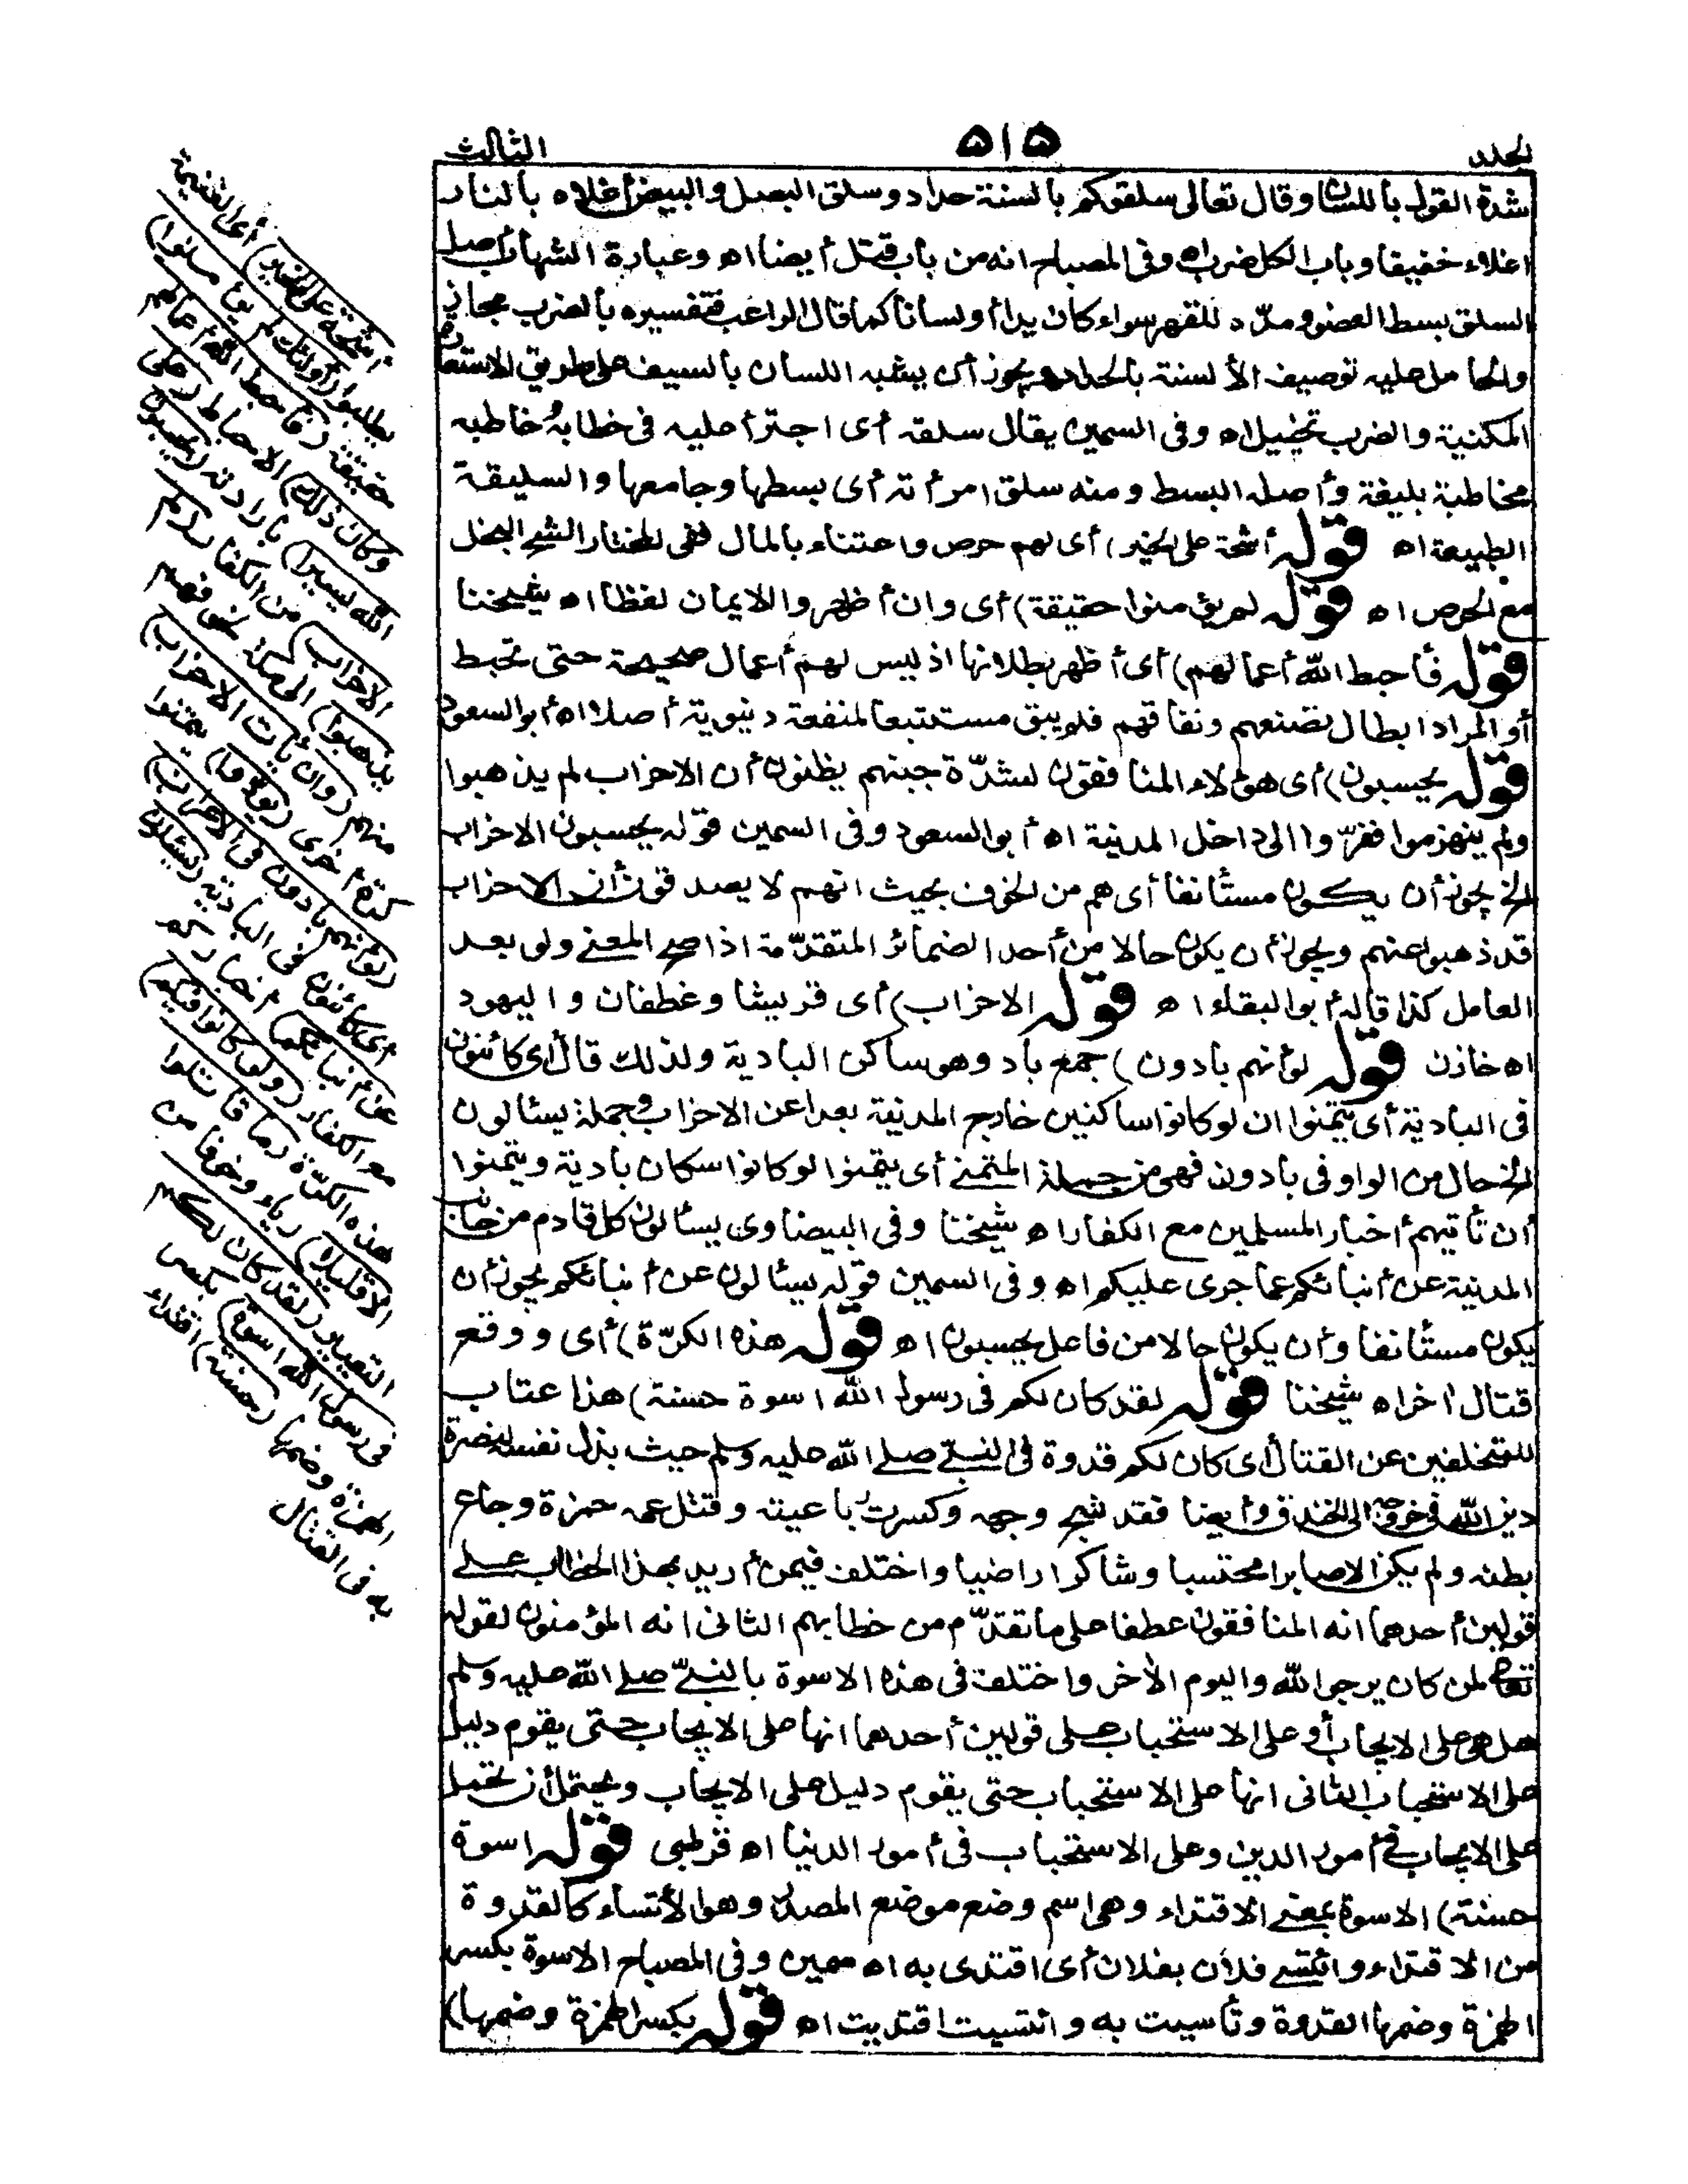 الجلد
٥١٥
الثالث
شدة القول باللسان وقال تعالى سلقوكم بالسنة حداد وسلق البصل والبيض أغلاه بالنار
اغلاء خفيفا وباب الكل ضرب اه وفى المصباح انه من باب قتل أيضا اه وعبارة الشهاب أصل
السلق بسط العضو ومدّه للقهر سواء كان يدا أو لسانا كما قال الراغب فتفسيره بالضرب مجاز
والحامل عليه توصيف الألسنة بالحداد ويجوز أن يشبه اللسان بالسيف على طريق الاستعارة
المكنية والضرب تخييل اه وفى السمين يقال سلقه أى اجترأ عليه فى خطابه خاطبه
مخاطبة بليغة وأصله البسط ومنه سلق امرأته أى بسطها وجامعها والسليقة
الطبيعة اه قوله أشحة على الخير) أى لهم حرص واعتناء بالمال ففى المختار الشح البخل
مع الحرص اه قوله لم يؤمنوا حقيقة) أى وان أظهروا الايمان لفظا اه شيخنا
قوله فأحبط الله أعمالهم) أى أظهر بطلانها اذ ليس لهم أعمال صحيحة حتى تحبط
أو المراد ابطال تصنعهم ونفاقهم فلم يبق مستتبعا لمنفعة دنيوية أصلا اه أبو السعود
قوله يحسبون) أى هؤلاء المنافقون لشدّة جبنهم يظنون أن الاحزاب لم يذهبوا
ولم ينهزموا ففرّوا الى داخل المدينة اه أبو السعود وفى السمين قوله يحسبون الاحزاب
الخ يجوز أن يكون مستأنفا أى هم من الخوف بحيث انهم لا يصدقون أن الاحزاب
قد ذهبوا عنهم ويجوز أن يكون حالا من أحد الضمائر المتقدّمة اذا صح المعنى ولو بعد
العامل كذا قاله أبو البقاء اه قوله الاحزاب) أى قريشا وغطفان واليهود
اه خازن قوله لو أنهم بادون) جمع باد وهو ساكن البادية ولذلك قال أى كائنون
فى البادية أى يتمنوا ان لو كانوا ساكنين خارج المدينة بعدا عن الاحزاب وجملة يسألون
الخ حال من الواو فى بادون فهى من جملة المتمنى أى يتمنوا لو كانوا سكان بادية ويتمنوا
أن تأتيهم أخبار المسلمين مع الكفار اه شيخنا وفى البيضاوى يسألون كل قادم من جانب
المدينة عن أنبائكم عما جرى عليكم اه وفى السمين قوله يسألون عن أنبائكم يجوز أن
يكون مستأنفا وأن يكون حالا من فاعل يحسبون اه قوله هذه الكرّة) أى ووقع
قتال اخر اه شيخنا قوله لقد كان لكم فى رسول الله اسوة حسنة) هذا عتاب
للمتخلفين عن القتال أى كان لكم قدوة فى النبىّ صلى الله عليه وسلم حيث بذل نفسه لنصرة
دين الله فى خروجه الى الخندق وأيضا فقد شج وجهه وكسرت رباعيته وقتل عمه حمزة وجاع
بطنه ولم يكن الا صابرا محتسبا وشاكرا راضيا واختلف فيمن أريد بهذا الخطاب على
قولين أحدهما انه المنافقون عطفا على ما تقدّم من خطابهم الثانى انه المؤمنون لقوله
تعالى لمن كان يرجوا الله واليوم الأخر واختلف فى هذه الاسوة بالنبىّ صلى الله عليه وسلم
هل هى على الايجاب أو على الاستحباب على قولين أحدهما انها على الايجاب حتى يقوم دليل
على الاستحباب الثانى انها على الاستحباب حتى يقوم دليل على الايجاب ويحتمل أن تحمل
على الايجاب فى أمور الدين وعلى الاستحباب فى أمور الدنيا اه قرطبى قوله اسوة
حسنة) الاسوة بمعنى الاقتداء وهى اسم وضع موضع المصدر وهو الأتساء كالقدوة
من الاقتداء وائتسى فلان بفلان أى اقتدى به اه سمين وفى المصباح الاسوة بكسر
الهمزة وضمها القدوة وتأسيت به وائتسيت اقتديت اه قوله بكسر الهمزة وضمها)
أشحة على الخير) أى الغنيمة
يطلبوا (أولئك لم يؤمنوا)
حقيقة (فأحبط الله أعمالهم
وكان ذلك) الاحباط (على
الله يسيرا) بارادته (يحسبون
الاحزاب) من الكفار (لم
يذهبوا) الى مكة لخوفهم
منهم (وان يأت الاحزاب)
كرة أخرى (يودّوا) يتمنوا
(لو أنهم بادون فى الاعراب)
أى كائنون فى البادية (يسألون
عن أنبائكم) أخباركم
مع الكفار (ولو كانوا فيكم)
هذه الكرّة (ما قاتلوا
الا قليلا) رياء وخوفا من
التعيير (لقد كان لكم
فى رسول الله اسوة) بكسر
الهمزة وضمها (حسنة) اقتداء
به فى القتال